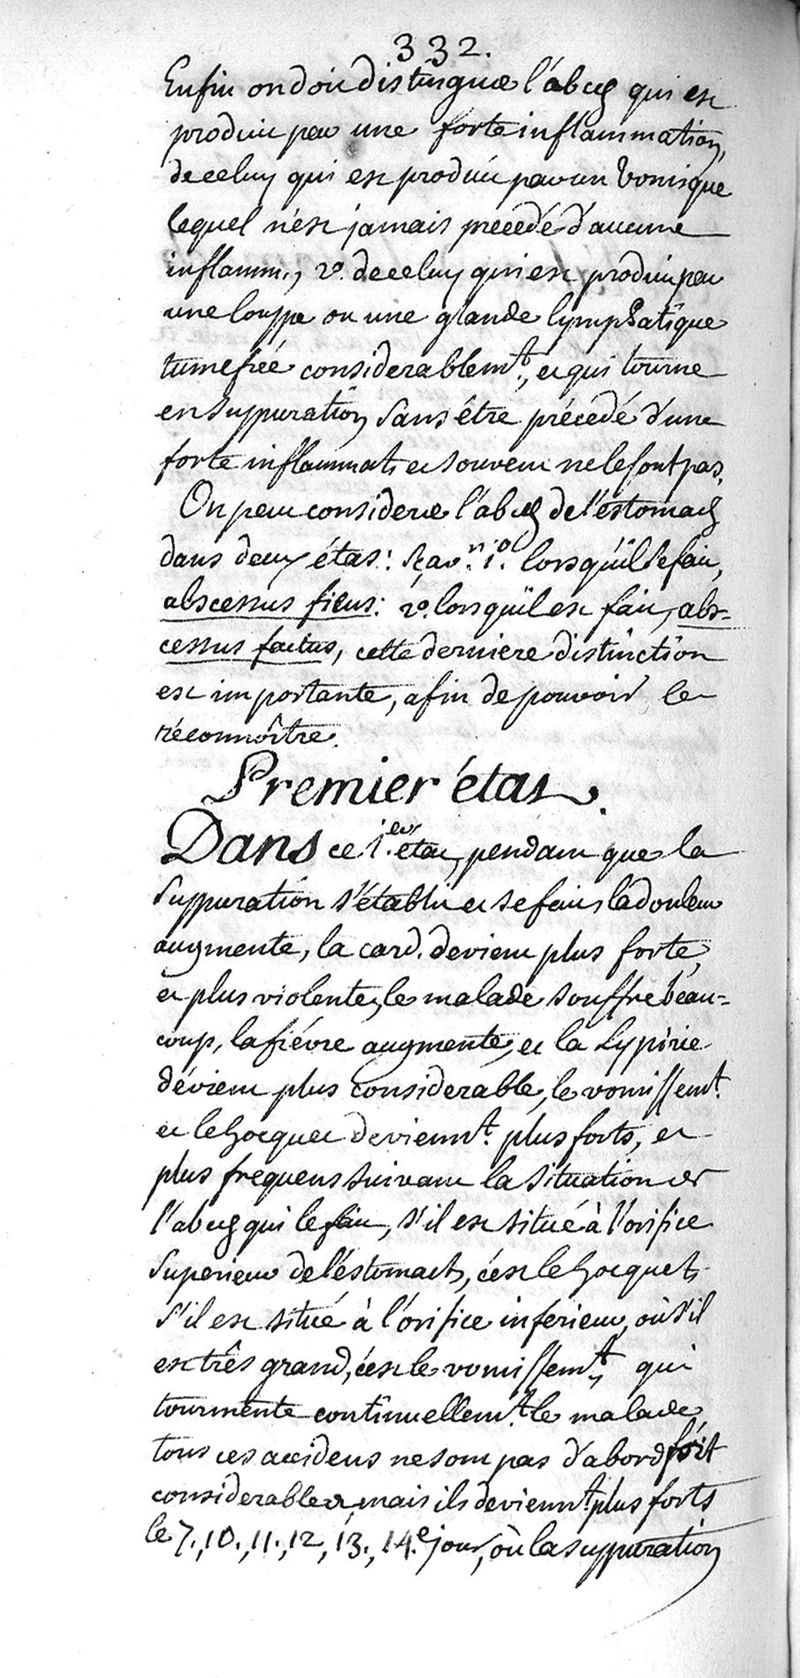 332.
Enfin on doit distinguer l'abcès qui est
produit par une forte inflammation,
de celuy qui est produit par un vomique
lequel n'est jamais precedé d'aucune
inflamm., 2.° de celuy qui est produit par
une louppe ou une glande lymphatique
tumefiée considerablem.t, et qui tourne
en suppuration sans être précedé d'une
forte inflammat. et souvent ne le sont pas.
On peut considerer l'abcès de l'estomach
dans deux étas: sçav.n 1.° lorsqu'il se fait,
abscessus fiens: 2.° lorsqu'il est fait, abs=
cessus factus, cette derniere distinction
est importante, afin de pouvoir le
réconnoître.
Premier étas.
Dans ce 1.er état, pendant que la
suppuration s'établit et se fait, la douleur
augmente, la card. devient plus forte,
et plus violente, le malade souffre beau=
coup, la fiévre augmente, et la Lypirie
dévient plus considerable, le vomissem.t
et le hocquet devienn.t plus forts, et
plus frequens suivant la situation de
l'abcès qui se fait, s'il est situé à l'orifice
superieur de l'éstomach, c'est le hocquet,
s'il est situé à l'orifice inferieur, où s'il
est très grand, c'est le vomissem.t qui
tourmente continuellem.t le malade,
tous ces accidens ne sont pas d'abord fort
considerables, mais ils devienn.t plus forts
le 7., 10., 11., 12, 13., 14.e jour, où la suppuration